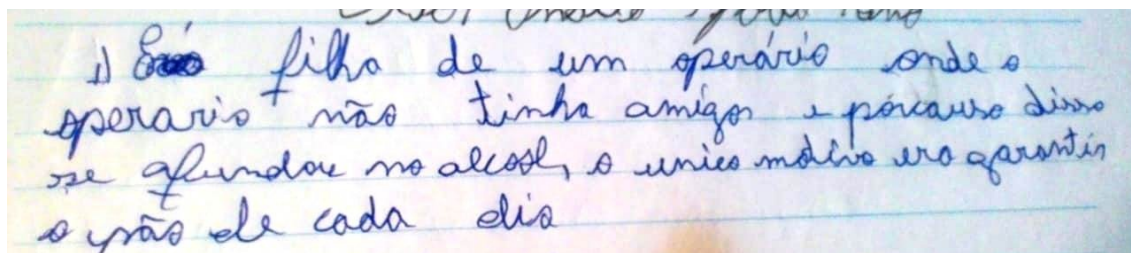 1) É filha de um operário onde o
operario não tinha amigos e porcauso disso
se afundou no alcool, o unico motivo era garantir
o pão de cada dia